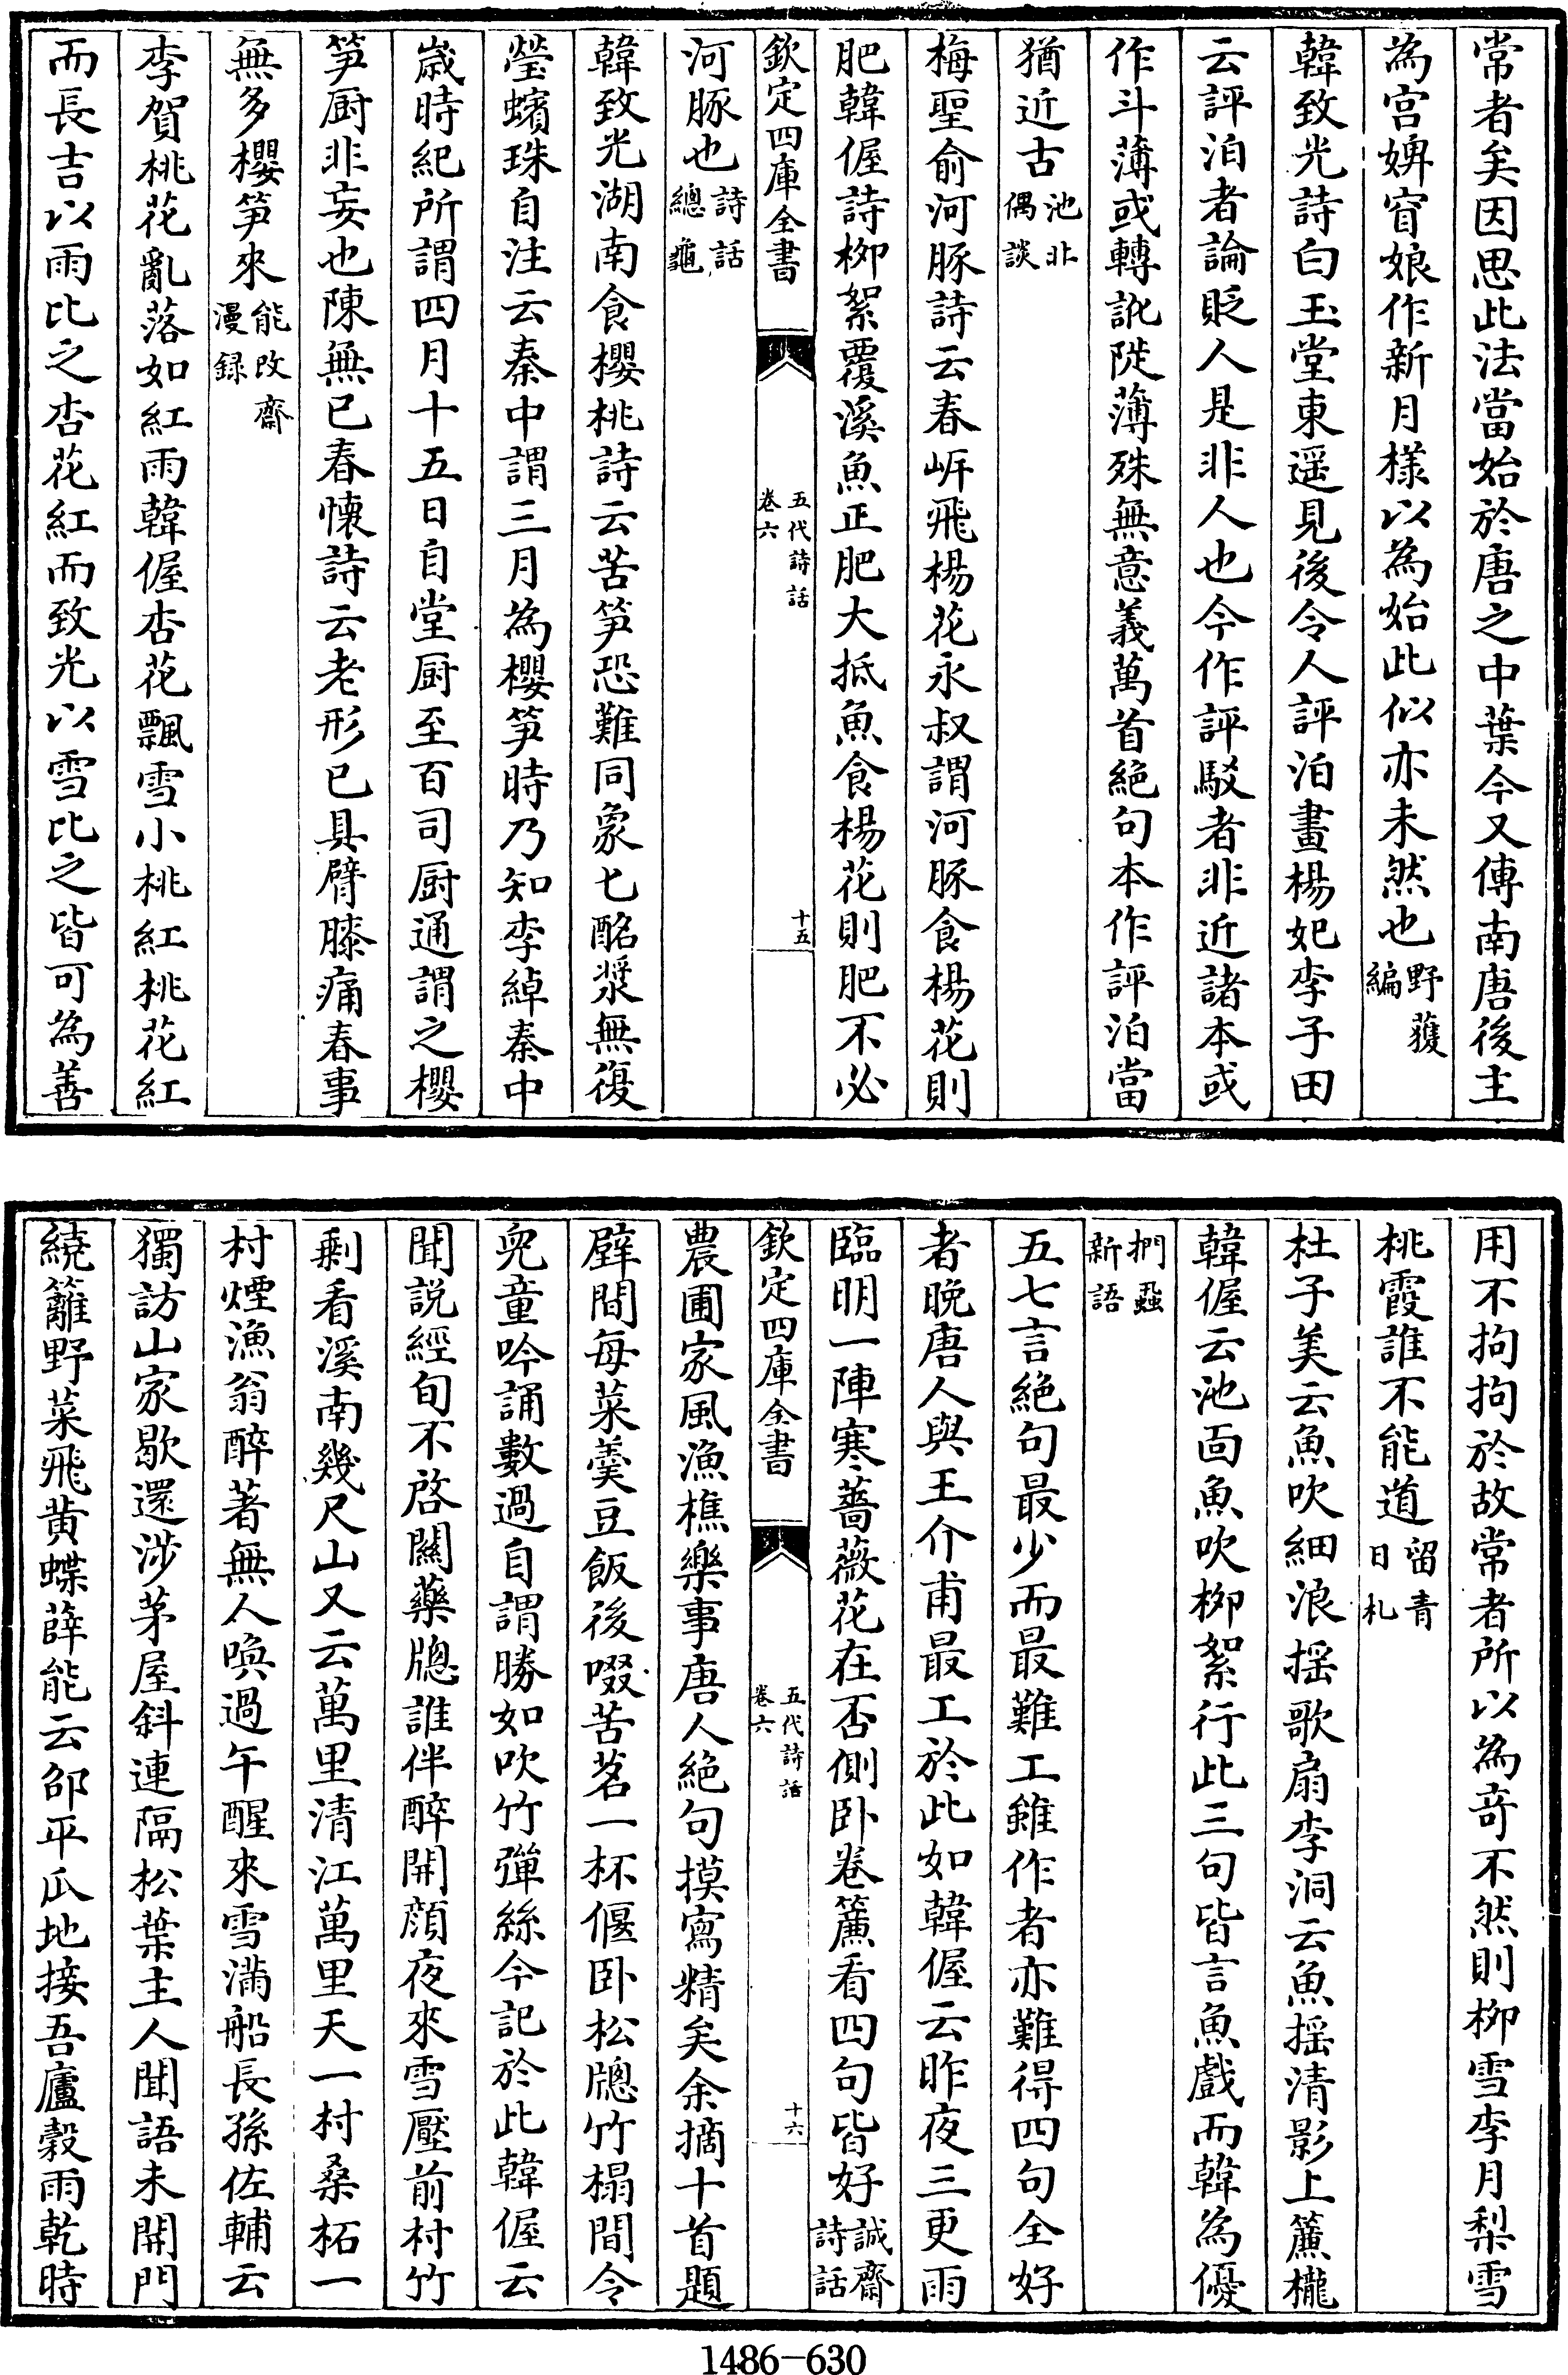 常者矣因思此法當始於唐之中葉今又傳南唐後主
為宫婢窅娘作新月様以為始此似亦未然也野獲編
韓致光詩白玉堂東遥見後令人評泊畫楊妃李子田
云評泊者論貶人是非人也今作評駁者非近諸本或
作斗薄或轉訛陡薄殊無意義萬首絶句本作評泊當
猶近古池北偶談
梅聖俞河豚詩云春岍飛楊花永叔謂河豚食楊花則
肥韓偓詩栁絮覆溪魚正肥大抵魚食楊花則肥不必
欽定四庫全書
五代詩話
卷六
十五
河豚也詩話總龜
韓致光湖南食櫻桃詩云苦笋恐難同象匕酩漿無復
瑩蠙珠自注云秦中謂三月為櫻笋時乃知李綽秦中
嵗時紀所謂四月十五日自堂厨至百司厨通謂之櫻
笋厨非妄也陳無已春懐詩云老形已具臂膝痛春事
無多櫻笋來能改齋漫録
李賀桃花亂落如紅雨韓偓杏花飄雪小桃紅桃花紅
而長吉以雨比之杏花紅而致光以雪比之皆可為善
用不拘拘於故常者所以為竒不然則栁雪李月梨雪
桃霞誰不能道留青日札
杜子美云魚吹細浪揺歌扇李洞云魚揺清影上簾櫳
韓偓云池面魚吹栁絮行此三句皆言魚戲而韓為優
捫蝨新語
五七言絶句最少而最難工雖作者亦難得四句全好
者晚唐人與王介甫最工於此如韓偓云昨夜三更雨
臨明一陣寒薔薇花在否側卧巻簾看四句皆好誠齋詩話
欽定四庫全書
五代詩話
卷六
十六
農圃家風漁樵樂事唐人絶句摸寫精矣余摘十首題
壁間每菜羮豆飯後啜苦茗一杯偃卧松牕竹榻間令
兒童吟誦數過自謂勝如吹竹彈絲今記於此韓偓云
聞説經旬不啓關藥牕誰伴醉開顔夜來雪壓前村竹
剰看溪南幾尺山又云萬里清江萬里天一村桑柘一
村煙漁翁醉著無人喚過午醒來雪滿船長孫佐輔云
獨訪山家歇還渉茅屋斜連隔松葉主人聞語未開門
繞籬野菜飛黄蝶薛能云邵平瓜地接吾廬榖雨乾時
1486-630